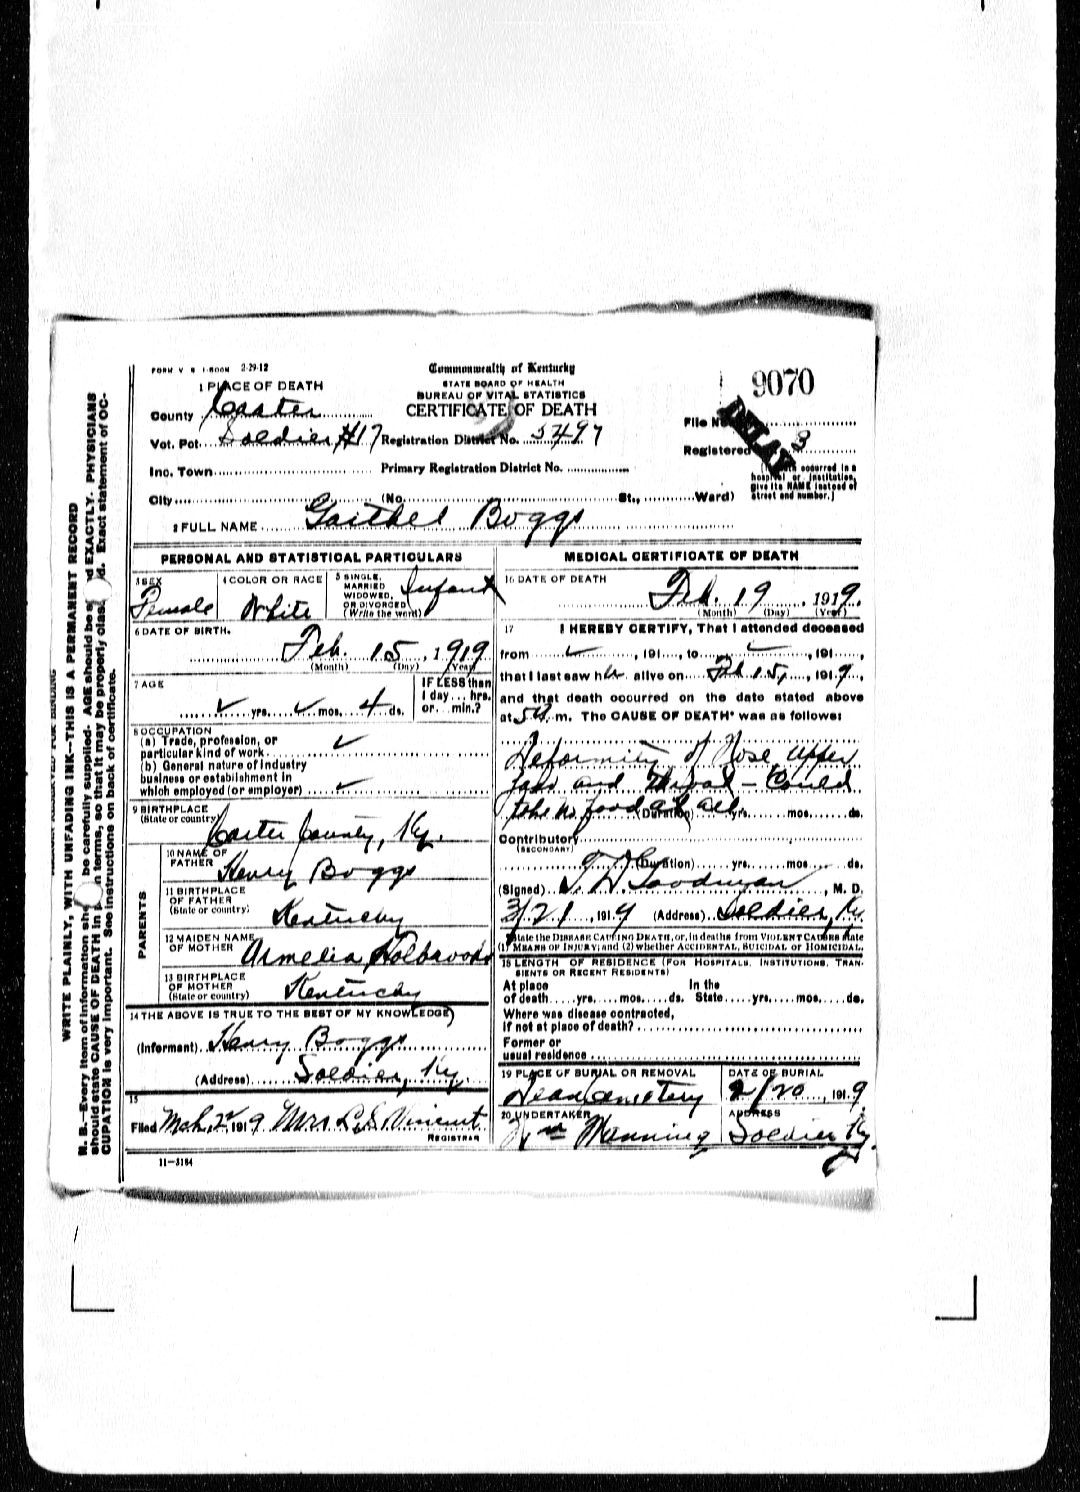 FORM V S 1-500M 2-29-12
Commonwealth of Kentucky
STATE BOARD OF HEALTH
BUREAU OF VITAL STATISTICS
CERTIFICATE OF DEATH
9070
DELAY
1 PLACE OF DEATH
County Carter
Vot. Pct. Soldier #17 Registration District No. 5497
File No.
Registered 3
Inc. Town Primary Registration District No.
City (No. St., Ward)
occurred in a
hospital or institution,
give its NAME instead of
street and number.]
2 FULL NAME Boggs
PERSONAL AND STATISTICAL PARTICULARS
3 SEX
Female
4 COLOR OR RACE
White
5 SINGLE,
MARRIED
WIDOWED,
OR DIVORCED
(Write the word)
Infant
6 DATE OF BIRTH.
Feb. 15, 1919
(Month) (Day) (Year)
7 AGE
yrs. mos. 4 ds.
IF LESS than
1 day ... hrs.
or ... min.?
8 OCCUPATION
(a) Trade, profession, or
particular kind of work
(b) General nature of industry
business or establishment in
which employed (or employer)
9 BIRTHPLACE
(State or country)
Carter County, Ky.
PARENTS
10 NAME OF
FATHER Henry Boggs
11 BIRTHPLACE
OF FATHER
(State or country)
Kentucky
12 MAIDEN NAME
OF MOTHER Armelia Holbrooks
13 BIRTHPLACE
OF MOTHER
(State or country) Kentucky
14 THE ABOVE IS TRUE TO THE BEST OF MY KNOWLEDGE
(Informant) Henry Boggs
(Address) Soldier, Ky.
15
Filed Mch. 22 1919 Mrs L. S. Vincent
REGISTRAR
11-3184
MEDICAL CERTIFICATE OF DEATH
16 DATE OF DEATH
Feb. 19, 1919
(Month) (Day) (Year)
17 I HEREBY CERTIFY, That I attended deceased
from , 191 , to , 191 ,
that I last saw her alive on Feb 15, 1919,
and that death occurred on the date stated above
at 5 a. m. The CAUSE OF DEATH* was as follows:
Deformity of Nose upper
Jaw and Throat - Could
take no food at all
(Duration) yrs. mos. ds.
Contributory
(SECONDARY)
(Duration) yrs. mos. ds.
(Signed) Goodman, M. D.
3/21, 1919 (Address) Soldier, Ky
*State the DISEASE CAUSING DEATH, or, in deaths from VIOLENT CAUSES state
(1) MEANS OF INJURY; and (2) whether ACCIDENTAL, SUICIDAL or HOMICIDAL.
18 LENGTH OF RESIDENCE (FOR HOSPITALS, INSTITUTIONS, TRAN-
SIENTS OR RECENT RESIDENTS)
At place In the
of death yrs. mos. ds. State yrs. mos. ds.
Where was disease contracted,
if not at place of death?
Former or
usual residence
19 PLACE OF BURIAL OR REMOVAL
Dean Cemetery
DATE OF BURIAL
2/20, 1919
20 UNDERTAKER
Wm Manning
ADDRESS
Soldier Ky.
WRITE PLAINLY, WITH UNFADING INK—THIS IS A PERMANENT RECORD
N. B.—Every item of information should be carefully supplied. AGE should be stated EXACTLY. PHYSICIANS
should state CAUSE OF DEATH in terms, so that it may be properly classified. Exact statement of OC-
CUPATION is very important. See instructions on back of certificate.